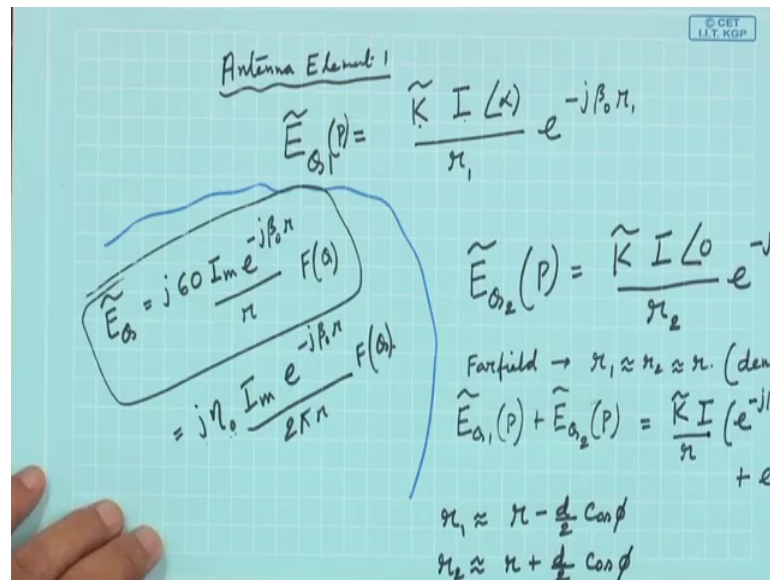 © CET
I.I.T. KGP
Antenna Element 1
Ẽ_θ1(P) = K̃ I ∠α / r₁ e^{-jβ₀r₁}
Ẽ_θ = j60 I_m e^{-jβ₀r} / r F(θ)
= jη₀ I_m e^{-jβ₀r} / 2πr F(θ).
Ẽ_θ2(P) = K̃ I ∠0 / r₂ e^{-j
Farfield → r₁ ≈ r₂ ≈ r. (den
Ẽ_θ1(P) + Ẽ_θ2(P) = K̃ I / r (e^{-j
+ e
r₁ ≈ r - d/2 Cosφ
r₂ ≈ r + d/2 Cosφ